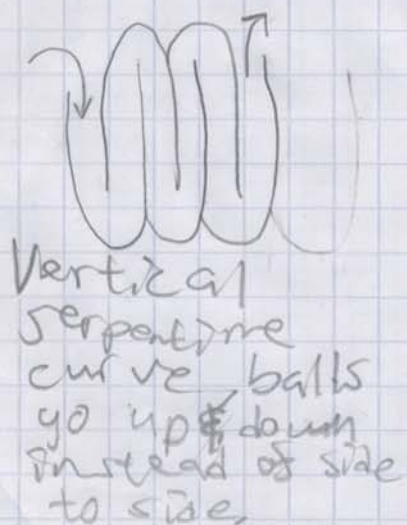 Vertical
serpentine
curve balls
go up & down
instead of side
to side.